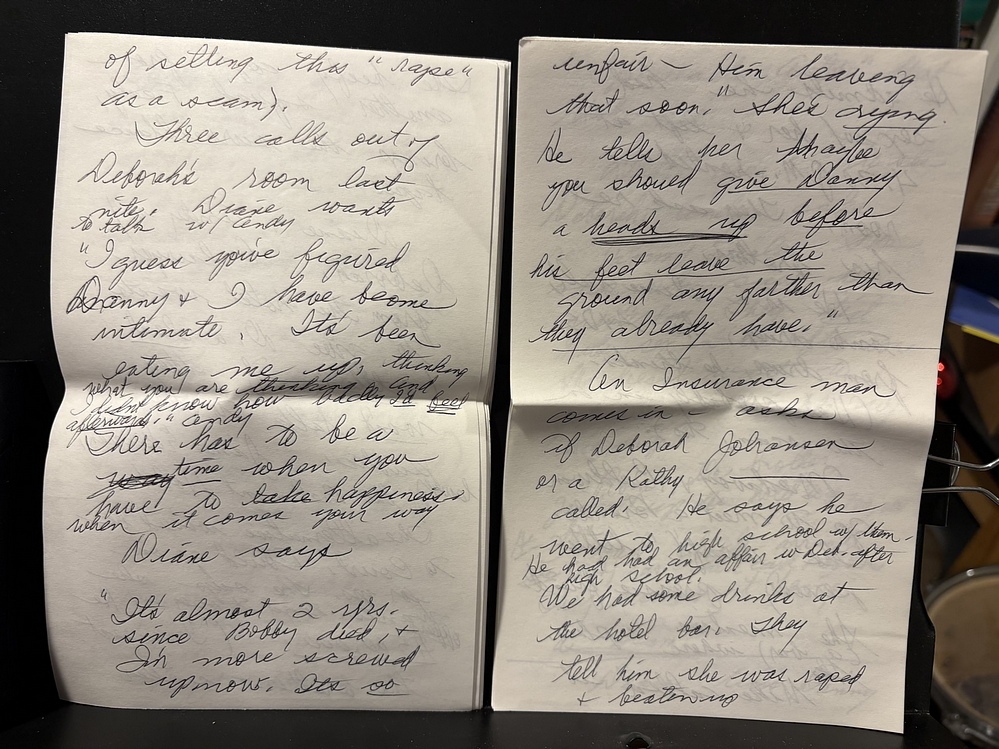 of selling this "rape"
as a scam).
Three calls out of
Deborah's room last
nite. Diane wants
to talk w/ Cindy
"I guess you've figured
Danny & I have become
intimate. It's been
eating me up, thinking
what you are thinking and
I didn't know how badly I'd feel
afterwards." Cindy
There has to be a
way time when you
have to take happiness
when it comes your way
Diane says
"It's almost 2 yrs.
since Bobby died, &
I'm more screwed
up now. Its so
unfair – Him leaving
that soon." She's crying.
He tells her maybe
you should give Danny
a heads up before
his feet leave the
ground any farther than
they already have."
An Insurance man
comes in – asks
if Deborah Johansen
or a Kathy
called. He says he
went to high school w/ them.
He had had an affair w Deb. after
high school.
We had some drinks at
the hotel bar. They
tell him she was raped
& beaten up